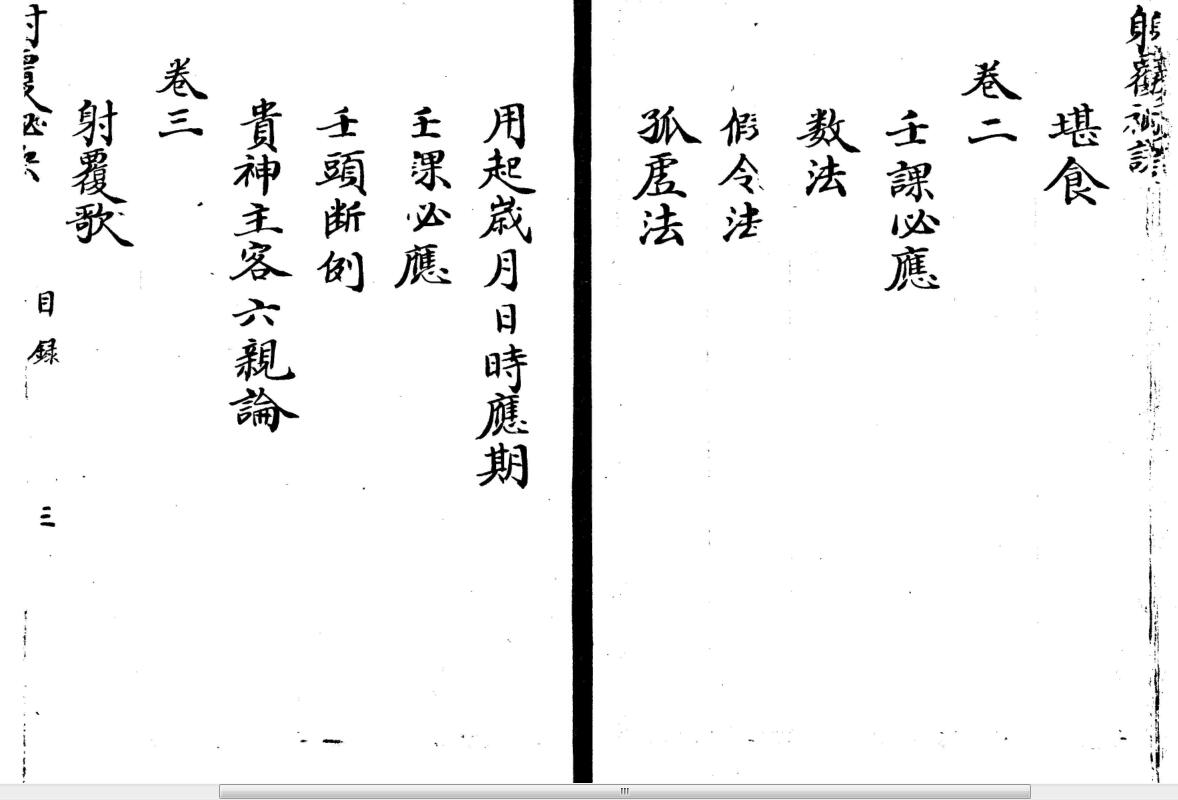 堪食
卷二
壬課必應
数法
假令法
孤虛法
用起歳月日時應期
壬課必應
壬頭断例
貴神主客六親論
卷三
射覆歌
目録
三
射覆必